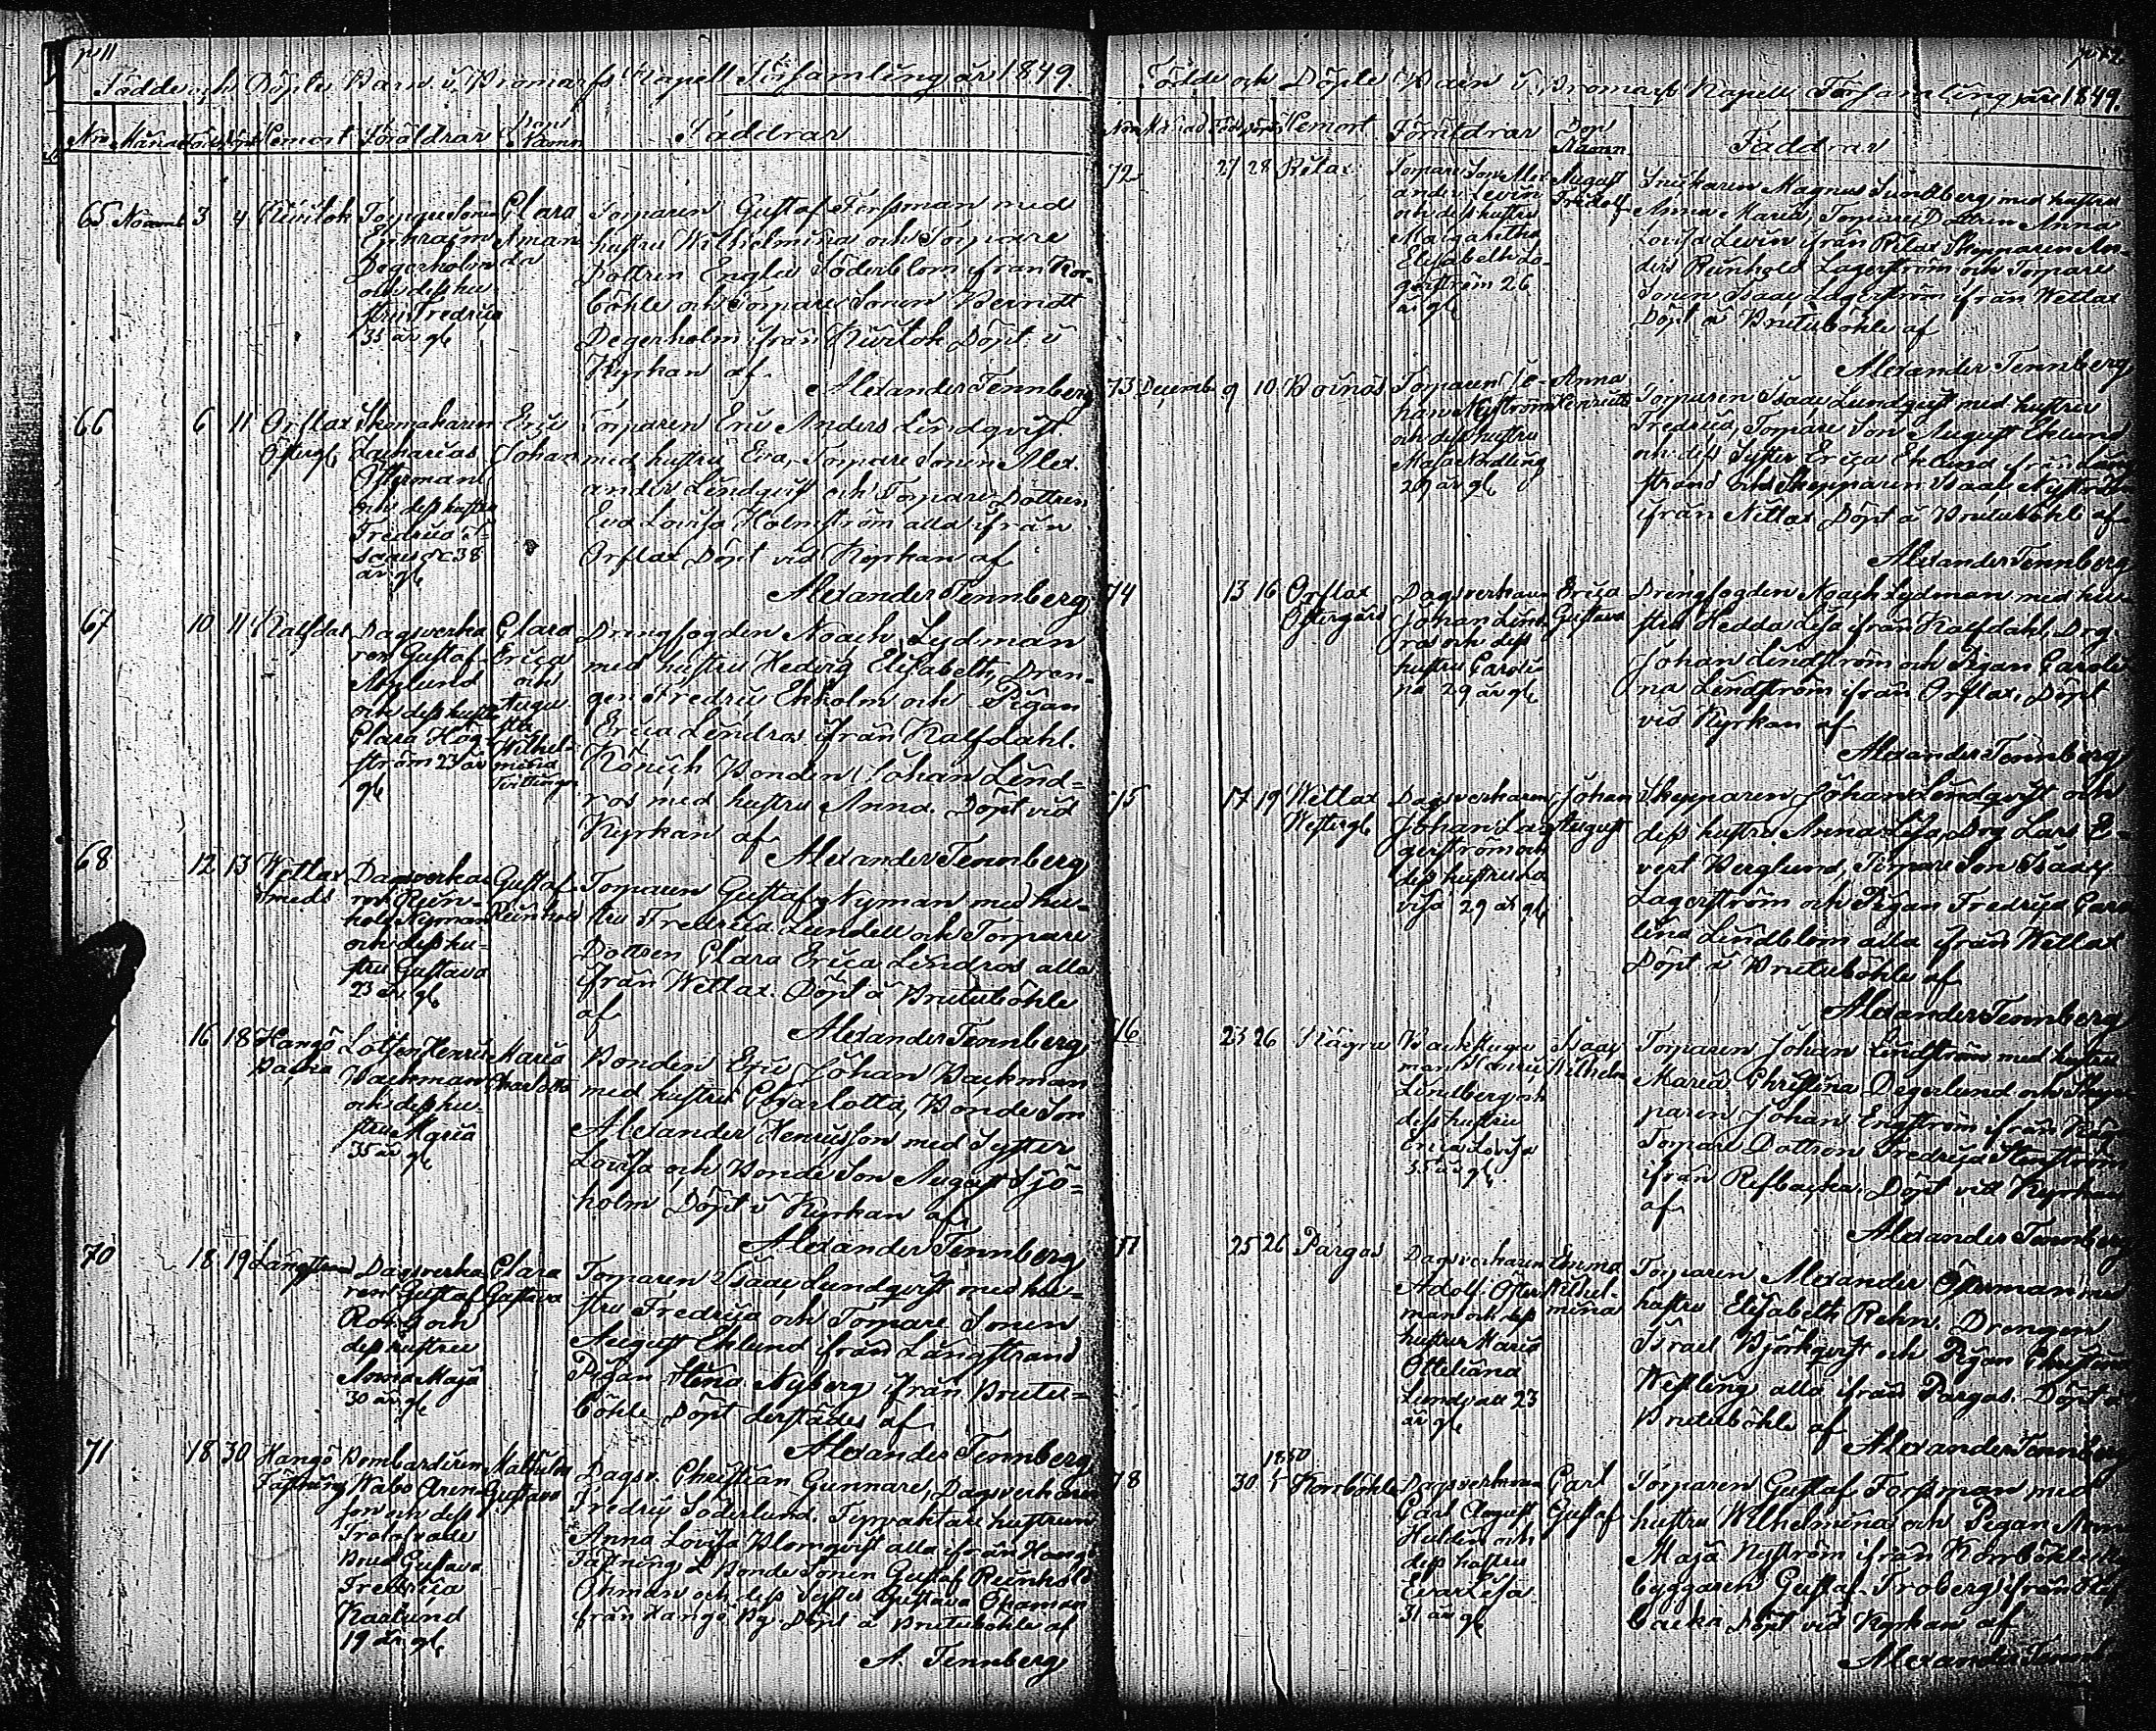 p 11
Födde och Döpte Barn i Bromarfs Kapell Församling år 1849.
Nro Månad Född Döpt Hemort Föräldrar Dops Namn Faddrar
65 Novemb 3 4
Torpare Sonen
Ephraim
Degerholm
och dess hu-
stru Fredrica
35 år gl
Clara
Aman
da
Torparen Gustaf Forssman med
hustru Wilhelmina och Torpare
Dottren Engla Söderblom ifrån Kor-
böhle och Torpare Sonen Berndt
Degerholm ifrån Döpt i
Kyrkan af
Alexander Tennberg
66 6 11 Orslax
Östergl
Skomakaren
Zacharias
Österman
och dess hustru
Fredrica I-
38
år gl
Eric
Johan
Torparen Eric Anders Lindqvist
med hustru Eva, Torpare Sonen Alex-
ander Lindqvist och Torpare Dottren
Eva Lovisa Holmström alla ifrån
Orslax Döpt vid Kyrkan af
Alexander Tennberg
67 10 11 Kalfdal
Dagsverka
ren Gustaf
och dess hustru
Clara Hög-
ström 23 år
gl
Clara
Erica
och
Augu
sta
Wilhel-
mina
Tvillingar
Drengfogden Noach Lydman
med hustru Hedvig Elisabeth, Dren-
gen Fredric Ekholm och Pigan
Erica Lindros ifrån Kalfdahl.
Bonden Johan Lind-
ros med hustru Anna. Döpt vid
Kyrkan af
Alexander Tennberg
68 12 13 Wettlax
Smeds
Dagsverka-
ren Rein-
hold Nyman
och dess hu-
stru Gustava
23 år gl
Gustaf
Reinhold
Torparen Gustaf Nyman med hu-
stru Fredrica Lundell och Torpare
Dottren Clara Erica Lindros alla
ifrån Wettlax. Döpt å Brutuböhle
af
Alexander Tennberg
16 18 Hangö
Backa
Lotsen Henric
Backman
och dess hu-
stru Maria
35 år gl
Maria
Charlotta
Bonden Eric Johan Backman
med hustru Charlotta, Bonde Son
Alexander Henricsson med Syster
Lovisa och Bonde Son August Sjö-
holm Döpt i Kyrkan af
Alexander Tennberg
70 18 19 Långstrand
Dagsverka
ren Gustaf
och
dess hustru
Anna Maja
30 år gl
Clara
Gustava
Torparen Isaac Lundqvist med hu-
stru Fredrica och Torpare Sonen
August Eklund ifrån Långstrand
Pigan Stina Nyberg ifrån Brutu-
böhle Döpt derstädes af
Alexander Tennberg
71 18 30 Hangö
Fästning
Bombardieren
son och dess
Trolofvade
Brud Gustava
Fredrica
Karlund
19 år gl
Mathilda
Gustava
Dagsv. Christian Gunnars, Dagsverkaren
Fredric Söderlund. hustrun
Anna Lovisa Blomqvist alla ifrån Hangö
Fästning & Bonde Sonen Gustaf Reinhold
Öhman och dess Syster Gustava Öhman
ifrån Hangö By. Döpt å Brutuböhle af
A. Tennberg
p 12
Födde och Döpte Barn i Bromarfs Kapell Församling år 1849.
Nro Månad Född Döpt Hemort Föräldrar Dop Namn Faddrar
72 27 28 Rilax
Torpare Son Alex-
ander Levin
och dess hustru
Margaretha
Elisabeth La-
gerström 26
år gl
August
Fridolf
Snickaren Magnus Sundberg med hustru
Anna Maria, Torpare Dottren Anna
Lovisa Levin ifrån Rilax Skepparen An-
ders Reinhold Lagerström och Torpare
Sonen Isaac Lagerström ifrån Wettlax
Döpt å Brutuböhle af
Alexander Tennberg
73 Decemb 9 10
Torparen Jo-
han Nyström
och dess hustru
Maja Nordling
29 år gl
Anna
Henriette
Torparen Isaac Lundqvist med hustru
Fredrica, Torpare Son August Eklund
och dess Syster Erica Eklund ifrån Lång-
strand och Skepparen Isaac Nyström
ifrån Döpt å Brutuböhle af
Alexander Tennberg
74 13 16 Orslax
Östergård
Dagsverkaren
Johan Lind-
ros och dess
hustru Caroli-
na 29 år gl
Erica
Gustava
Drengfogden Noach Lydman med hu-
stru Hedda Lisa ifrån Kalfdahl, Drg
Johan Lindström och Pigan Caroli-
na Lindström ifrån Orslax. Döpt
vid Kyrkan af
Alexander Tennberg
75 17 19 Wettlax
Westergl
Dagsverkaren
Johan La-
gerström och
dess hustru Lo
visa 29 år gl
Johan
August
Skepparen Johan Lindqvist och
dess hustru Anna Lisa, Drg Lars E-
vert Berglund, Torpare Son Isaac
Lagerström och Pigan Fredrica Caro-
lina Lindblom alla ifrån Wettlax
Döpt å Brutuböhle af
Alexander Tennberg
76 23 26
Backstugu
man Henric
Lindberg och
dess hustru
Erica Lovisa
35 år gl
Isaac
Wilhelm
Torparen Johan Lindström med hustru
Maria Christina Degerlund och Skep-
paren Johan Engström ifrån
Torpare Dottren Fredrica
ifrån Refbacka. Döpt vid Kyrkan
af
Alexander Tennberg
77 25 26 Pargas
Dagsverkaren
Adolf Öster-
man och dess
hustru Maria
Ottiliana
Lundvall 23
år gl
Emma
Wilhel-
mina
Torparen Alexander Österman med
hustru Elisabeth Rehn. Drengen
Israel Björkqvist och Pigan Christina
Westling alla ifrån Pargas. Döpt å
Brutuböhle af
Alexander Tennberg
1850
78 30 5 Korrböhle
Dagsverkaren
Carl August
och
dess hustru
Eva Lisa
31 år gl
Carl
Gustaf
Torparen Gustaf Forssman med
hustru Wilhelmina och Pigan Anna
Maja Nyström ifrån Korrböhle
byggaren Gustaf Froberg ifrån
backa Döpt vid Kyrkan af
Alexander Tennberg